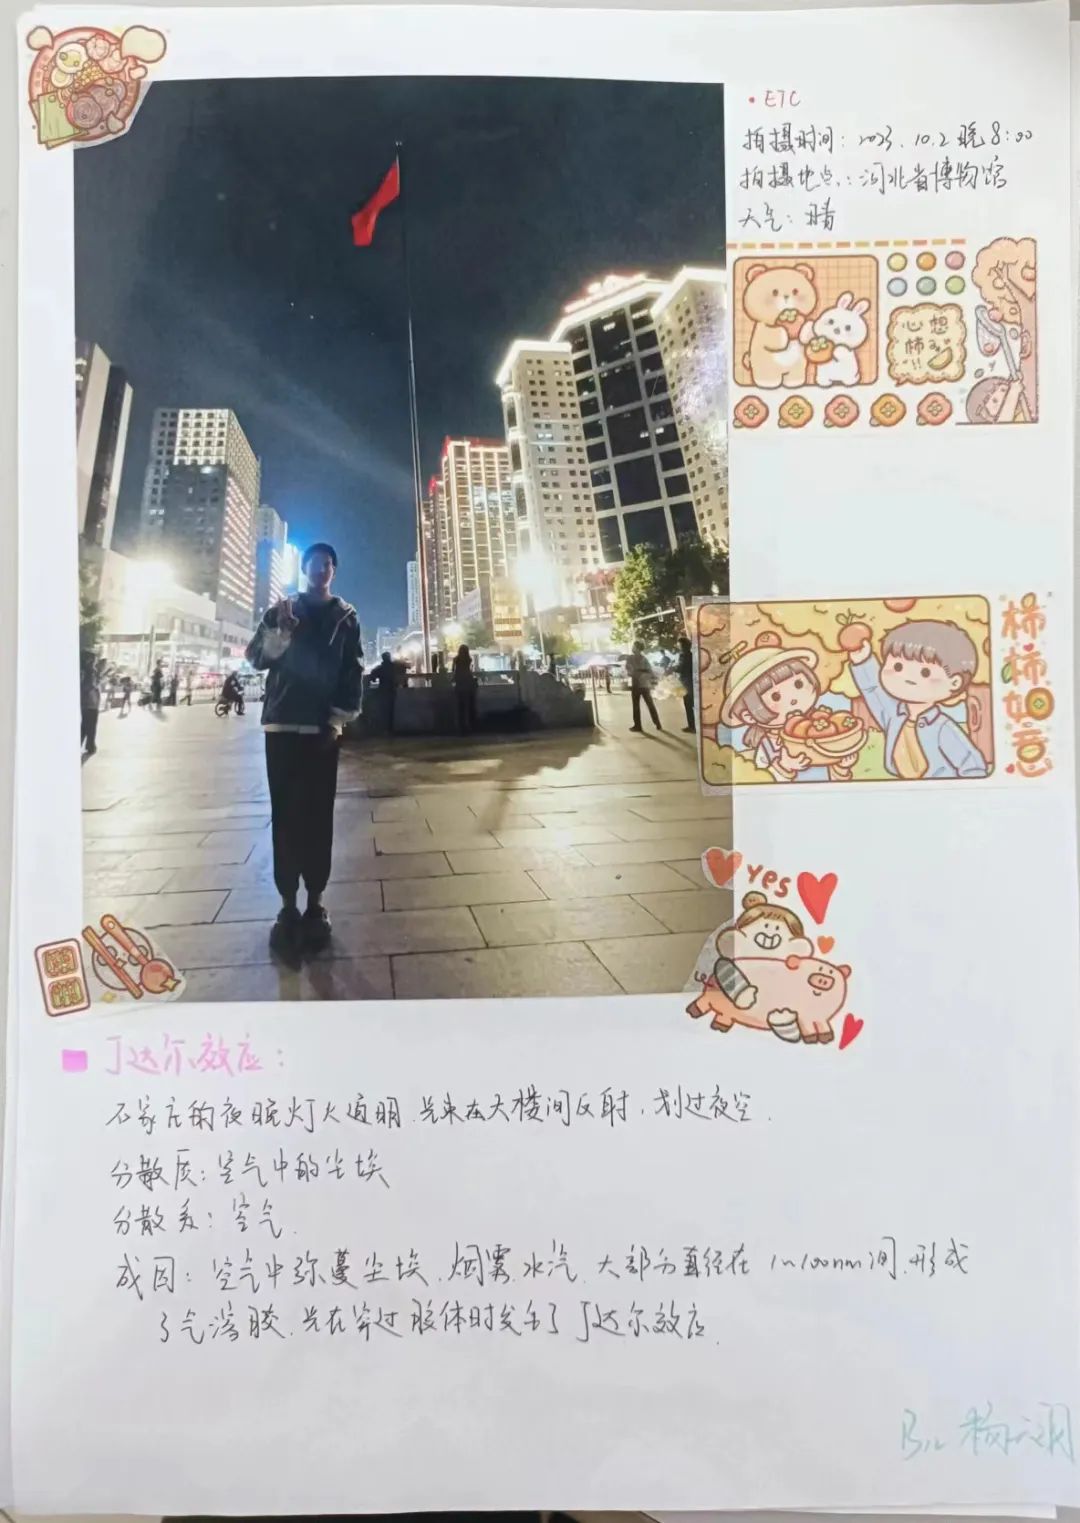 • ETC
拍摄时间：2023.10.2晚8:00
拍摄地点：河北省博物馆
天气：晴
心想
柿成
!!
柿柿如意
yes
丁达尔效应：
石家庄的夜晚灯火通明，光束在大楼间反射，划过夜空.
分散质：空气中的尘埃
分散系：空气.
成因：空气中弥蔓尘埃、烟雾、水汽，大部分直径在1~100nm间，形成
了气溶胶，光在穿过胶体时发生了丁达尔效应.